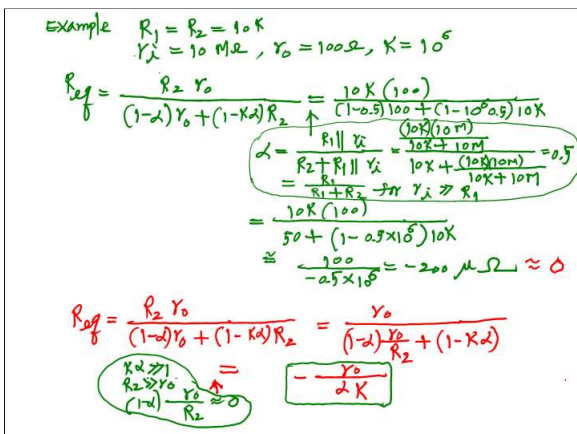 Example R₁ = R₂ = 10K
rᵢ = 10 MΩ, r₀ = 100Ω, K = 10⁶
Req = R₂ r₀ / ((1-α) r₀ + (1-Kα) R₂) = 10K (100) / ((1-0.5) 100 + (1-10⁶ 0.5) 10K)
α = R₁ || rᵢ / (R₂ + R₁ || rᵢ) = ((10K)(10M) / (10K + 10M)) / (10K + (10K)(10M) / (10K + 10M)) = 0.5
= R₁ / (R₁ + R₂) for rᵢ ≫ R₁
= 10K (100) / (50 + (1 - 0.5×10⁶) 10K)
≅ 100 / (-0.5×10⁶) = -200 μΩ ≈ 0
Req = R₂ r₀ / ((1-α) r₀ + (1-Kα) R₂) = r₀ / ((1-α) r₀/R₂ + (1-Kα))
Kα ≫ 1
R₂ ≫ r₀
(1-α) r₀/R₂ ≈ 0
= - r₀ / (αK)